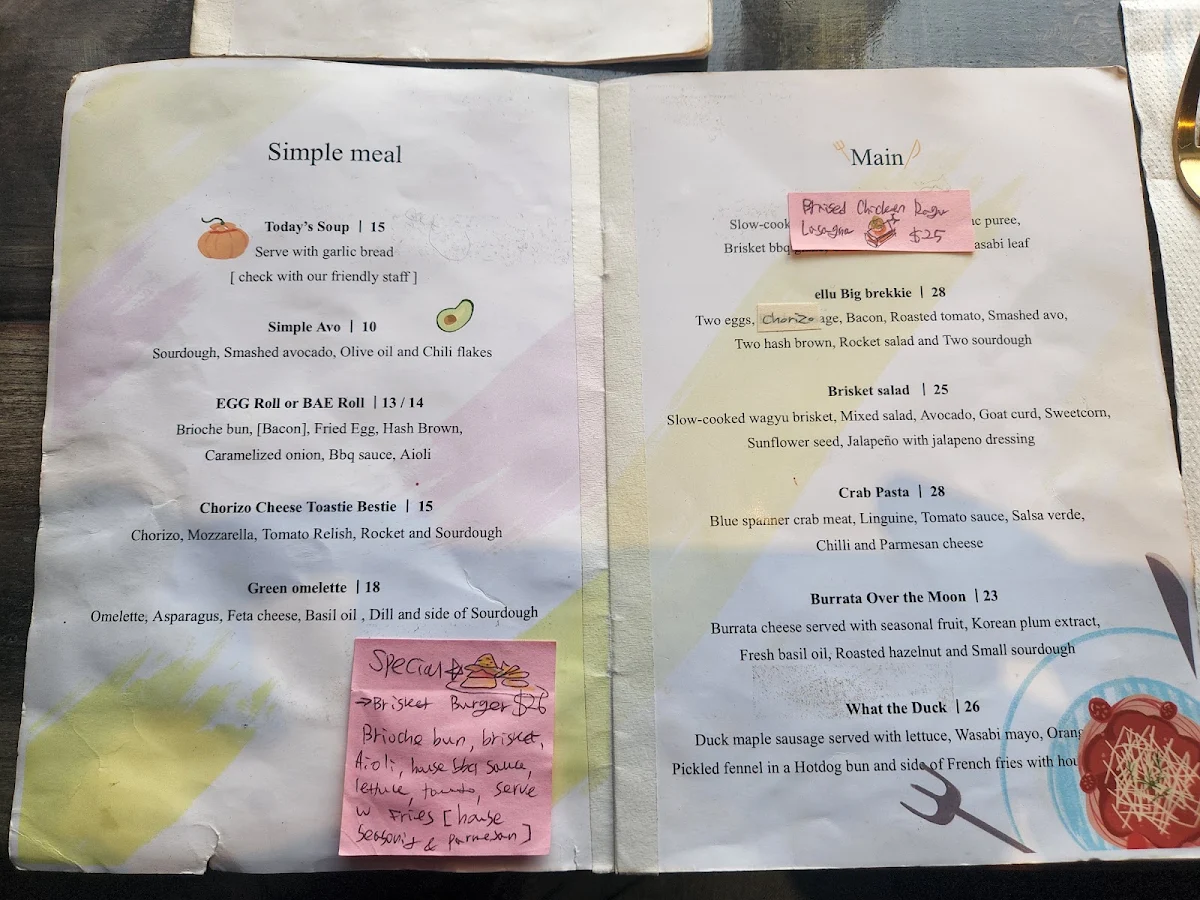 Simple meal
Today's Soup | 15
Serve with garlic bread
[ check with our friendly staff ]
Simple Avo | 10
Sourdough, Smashed avocado, Olive oil and Chili flakes
EGG Roll or BAE Roll | 13 / 14
Brioche bun, [Bacon], Fried Egg, Hash Brown,
Caramelized onion, Bbq sauce, Aioli
Chorizo Cheese Toastie Bestie | 15
Chorizo, Mozzarella, Tomato Relish, Rocket and Sourdough
Green omelette | 18
Omelette, Asparagus, Feta cheese, Basil oil , Dill and side of Sourdough
Special
→Brisket Burger $26
Brioche bun, brisket,
Aioli, house bbq sauce,
lettuce, tomato, serve
w Fries [house
Seasonig & parmesan]
Main
Braised Chicken Ragu
Lasagna $25
Slow-cook puree,
Brisket bbq leaf
ellu Big brekkie | 28
Two eggs, Chorizo age, Bacon, Roasted tomato, Smashed avo,
Two hash brown, Rocket salad and Two sourdough
Brisket salad | 25
Slow-cooked wagyu brisket, Mixed salad, Avocado, Goat curd, Sweetcorn,
Sunflower seed, Jalapeño with jalapeno dressing
Crab Pasta | 28
Blue spanner crab meat, Linguine, Tomato sauce, Salsa verde,
Chilli and Parmesan cheese
Burrata Over the Moon | 23
Burrata cheese served with seasonal fruit, Korean plum extract,
Fresh basil oil, Roasted hazelnut and Small sourdough
What the Duck | 26
Duck maple sausage served with lettuce, Wasabi mayo, Orang
Pickled fennel in a Hotdog bun and side of French fries with hou